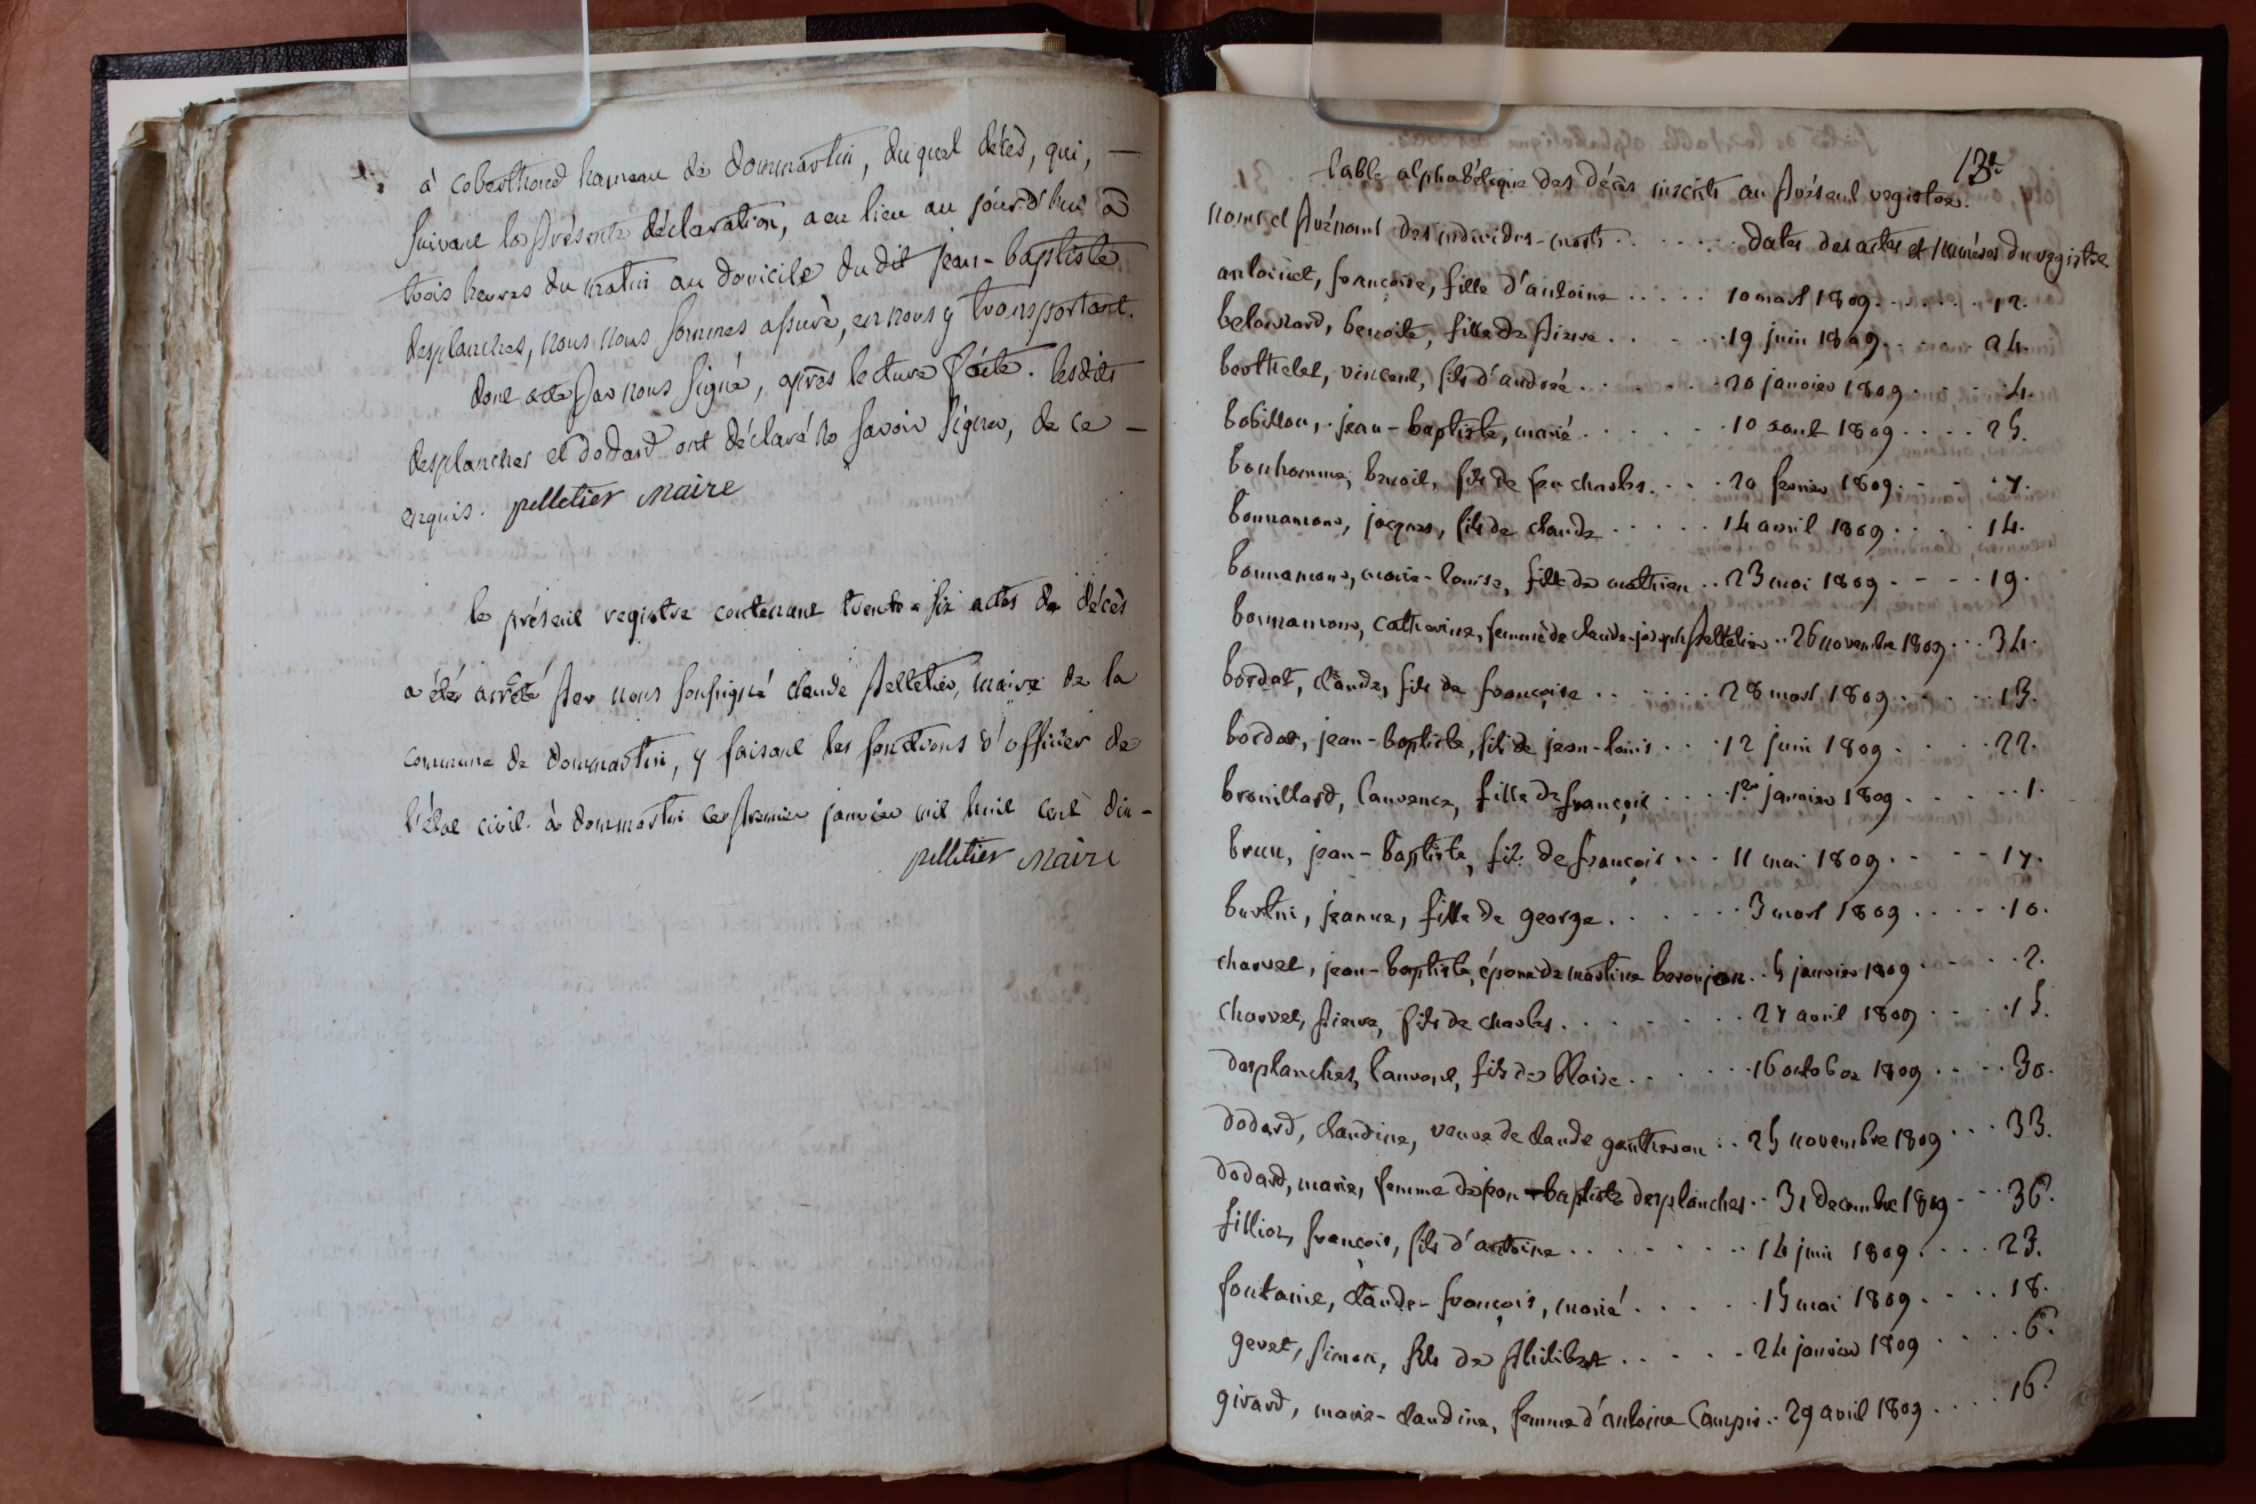 à coberthoud hameau de dommartin, duquel décès, qui, —
suivant la présente déclaration, a eu lieu au jourd'hui à
trois heures du matin au domicile dudit jean-baptiste
desplanches, nous nous sommes assuré, en nous y transportant.
dont acte par nous signé, après lecture faite. lesdits
desplanches et dodard ont déclaré ne savoir signer, de ce —
enquis. pelletier maire
le présent registre contenant trente-six actes de décès
a été arrêté par nous soussigné claude pelletier, maire de la
commune de dommartin, y faisant les fonctions d'officier de
l'état civil. à dommartin le premier janvier mil huit cent dix-
pelletier maire
13e
table alphabétique des décès inscrits au présent registre.
noms et prénoms des individus morts . . . . . . dates des actes et numéros du registre
antoinet, françoise, fille d'antoine . . . . . 10 mars 1809 . . . . . . 12.
belouzard, benoite, fille de pierre . . . . . 19 juin 1809 . . . . . 24.
berthelet, vincent, fils d'andré . . . . . . 20 janvier 1809 . . . . . 4.
bobillon, jean-baptiste, marié . . . . . . 10 aout 1809 . . . . 25.
bonhomme, benoit, fils de feu charles . . . . 20 fevrier 1809 . . . . 7.
bonnamour, jacques, fils de claude . . . . . 14 avril 1809 . . . . 14.
bonnamour, marie-louise, fille de mathieu . . 23 mai 1809 . . . . 19.
bonnamour, catherine, femme de claude-joseph pelletier . . 26 novembre 1809 . . . 34.
bordat, claude, fils de françoise . . . . . . 28 mars 1809 . . . . . 13.
bordat, jean-baptiste, fils de jean-louis . . . 12 juin 1809 . . . . 22.
brouillard, laurence, fille de françois . . . . 1er janvier 1809 . . . . . 1.
brun, jean-baptiste, fils de françois . . . 11 mai 1809 . . . . 17.
burtin, jeanne, fille de george . . . . . . 3 mars 1809 . . . . . 10.
charvet, jean-baptiste, époux de martine baronjon . . 5 janvier 1809 . . . . . 2.
charvet, pierre, fils de charles . . . . . . . 27 avril 1809 . . . . 15.
desplanches, laurent, fils de blaise . . . . . . 16 octobre 1809 . . . . 30.
dodard, claudine, veuve de claude gautheron . . 25 novembre 1809 . . . 33.
dodard, marie, femme de jean-baptiste desplanches . . 31 decembre 1809 . . . 36.
fillion, françois, fils d'antoine . . . . . . . 14 juin 1809 . . . . 23.
fontaine, claude-françois, marié . . . . . 15 mai 1809 . . . . 18.
gevet, simon, fils de philibert . . . . . 24 janvier 1809 . . . . . 6.
girard, marie-claudine, femme d'antoine campin . . 29 avril 1809 . . . . 16.